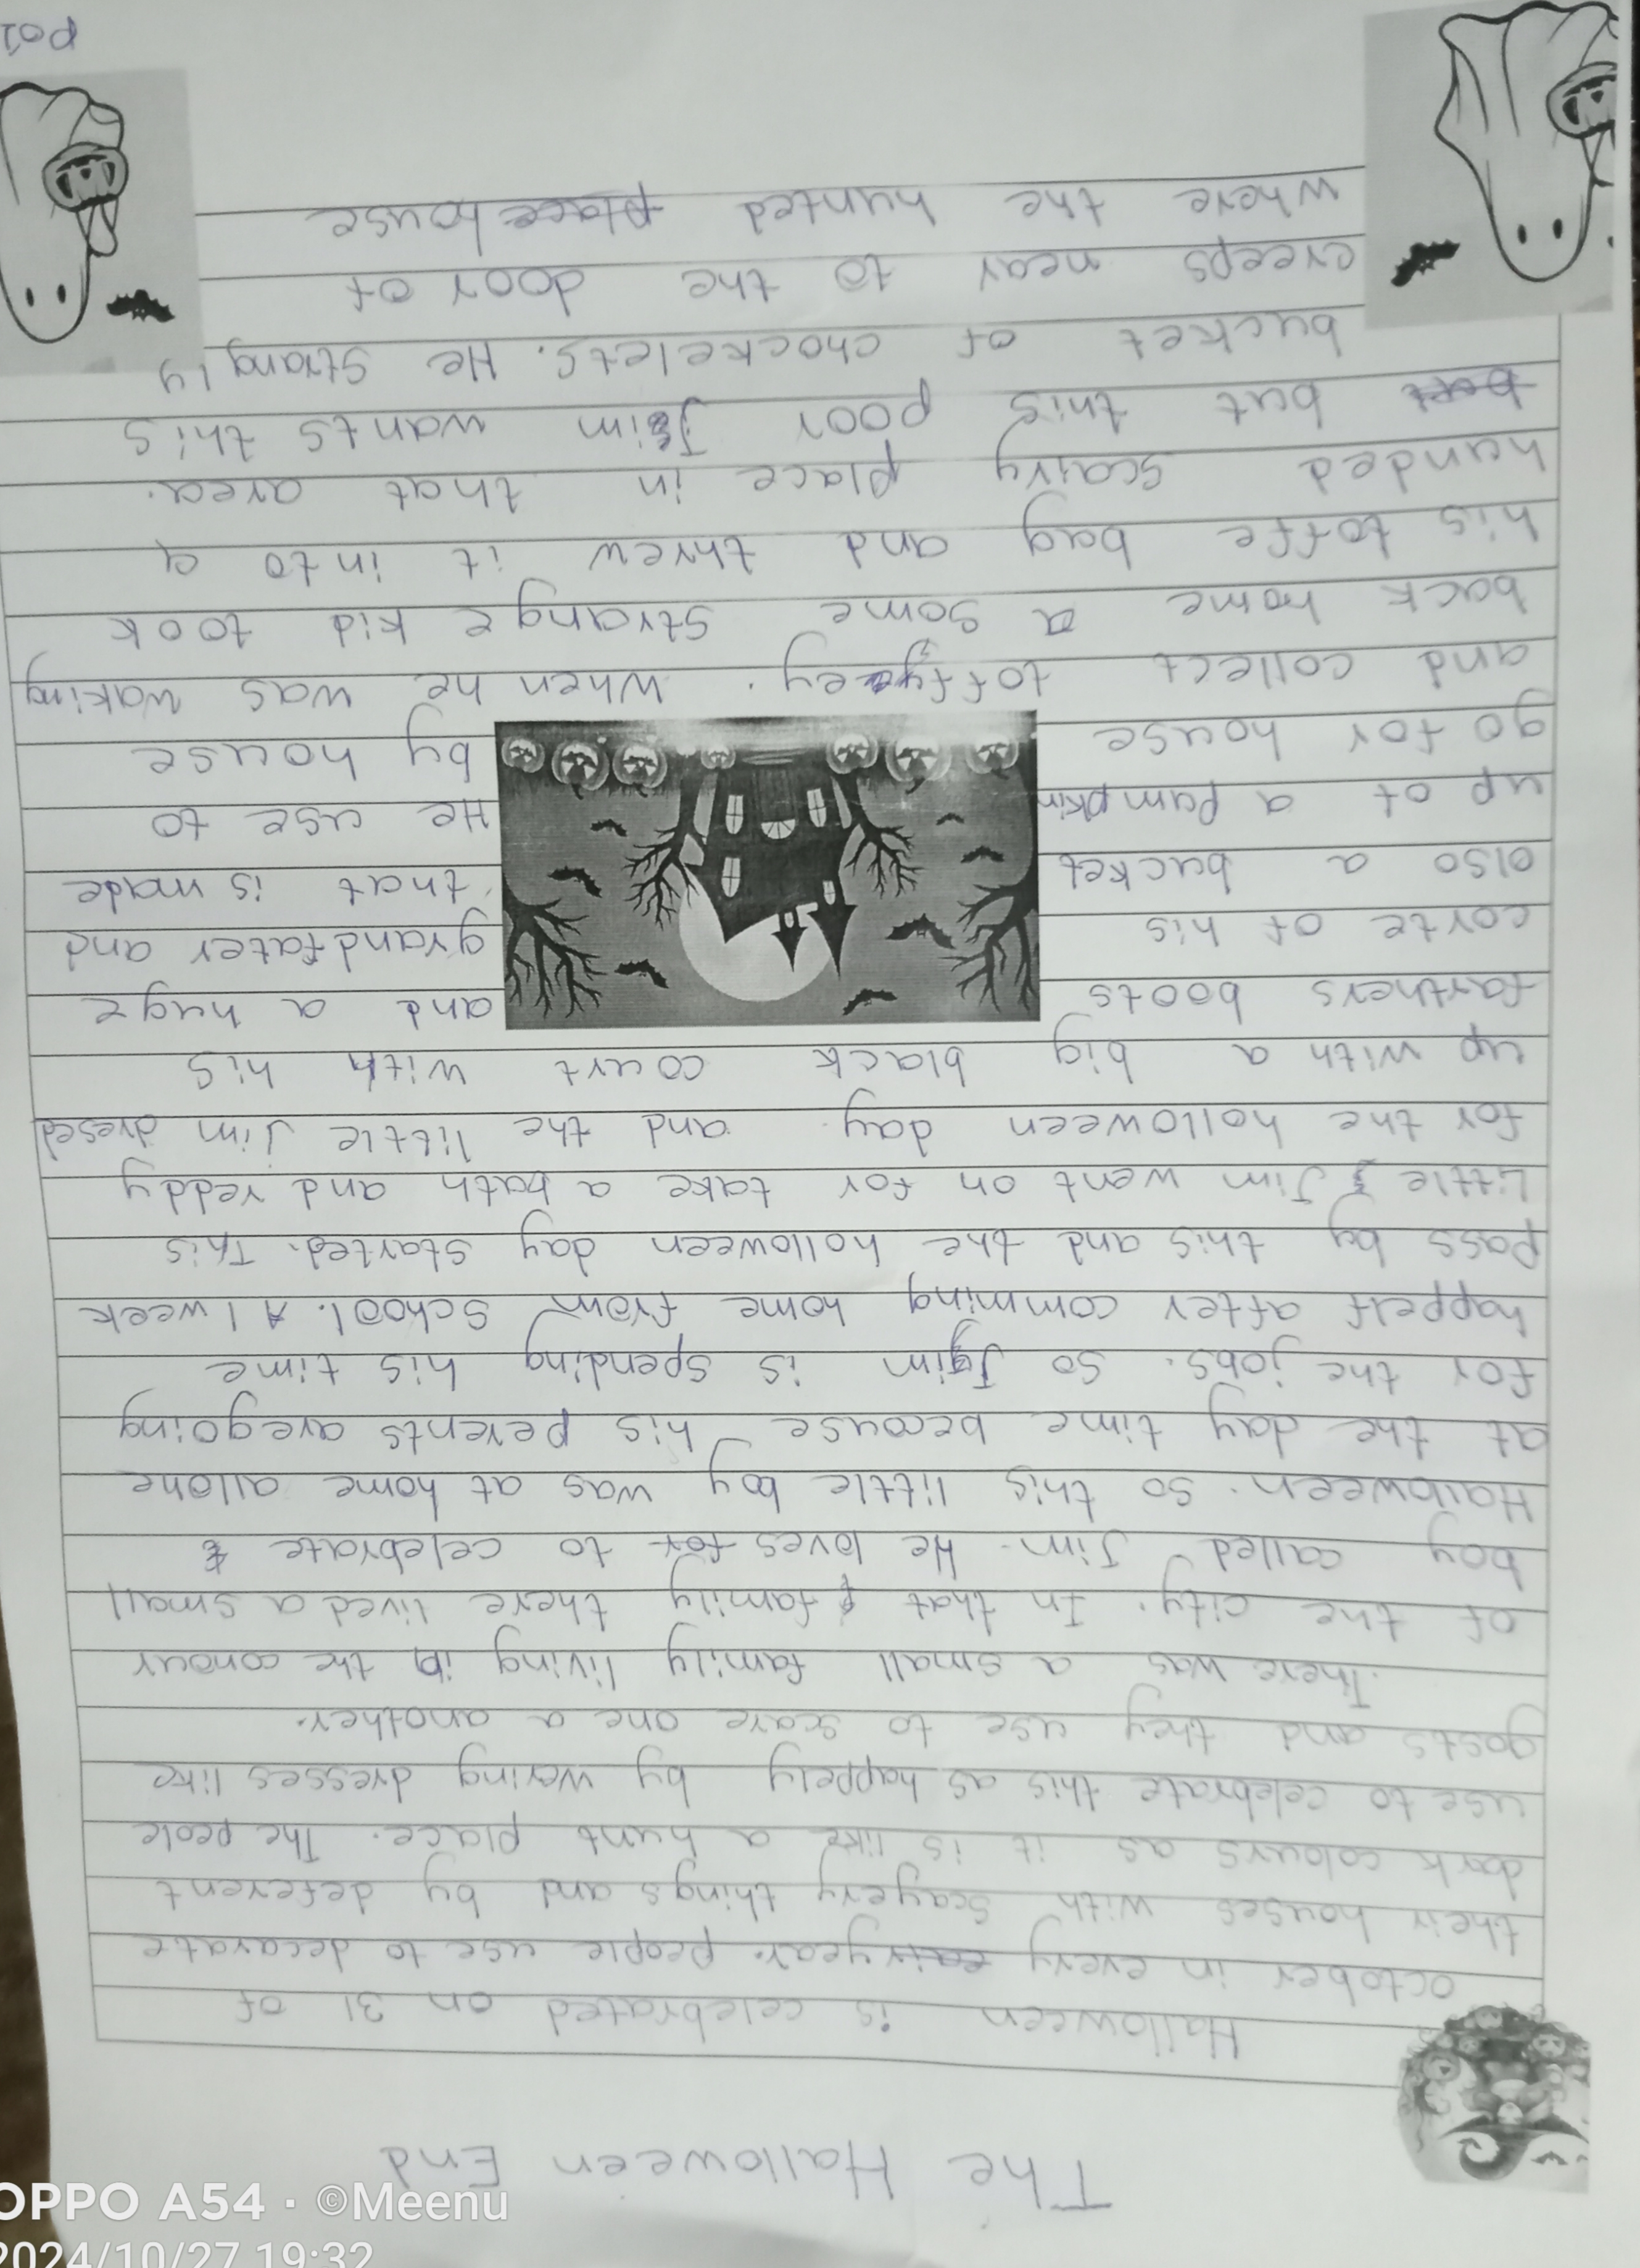 The Halloween End
Halloween is celebrated on 31 of
october in every year. people use to decarate
their houses with scayery things and by deferent
dark colours as it is like a hunt place. The peole
use to celebrate this as happely by wering dresses like
gosts and they use to scare one a another.
There was a small family living in the conour
of the city. In that family there lived a small
boy called Jim. He loves for to celebrate
Halloween. So this little boy was at home allone
at the day time becouse his perents are going
for the jobs. So Jim is spending his time
happelf after comming home from school. A 1 week
pass by this and the holloween day started. This
Little Jim went on for take a bath and reddy
for the holloween day. and the little Jim dresed
up with a big black court with his
farthers boots and a huge
corte of his grandfater and
olso a bucket that is made
up of a pumpkin He use to
go for house by house
and collect toffyey. When he was waking
back home a some strange kid took
his toffe bag and threw it into a
hunded scairy place in that area.
but this poor Jim wants this
bucket of chockelets. He strangly
creeps near to the door of
where the hunted place house
P01
OPPO A54 · ©Meenu
2024/10/27 19:32